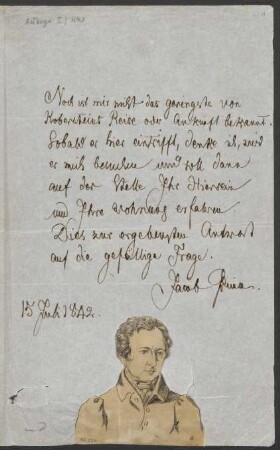 Noch ist mir nicht das geringste von
Koberstein's Reise oder Ankunft bekannt.
Sobald er hier eintrifft, denke ich, wird
er mich besuchen und soll dann
auf der Stelle Ihr Hiersein
und Ihre Wohnung erfahren
Dies zur ergebensten Antwort
auf die gefällige Frage.
Jacob Grimm.
15 Juli 1842.